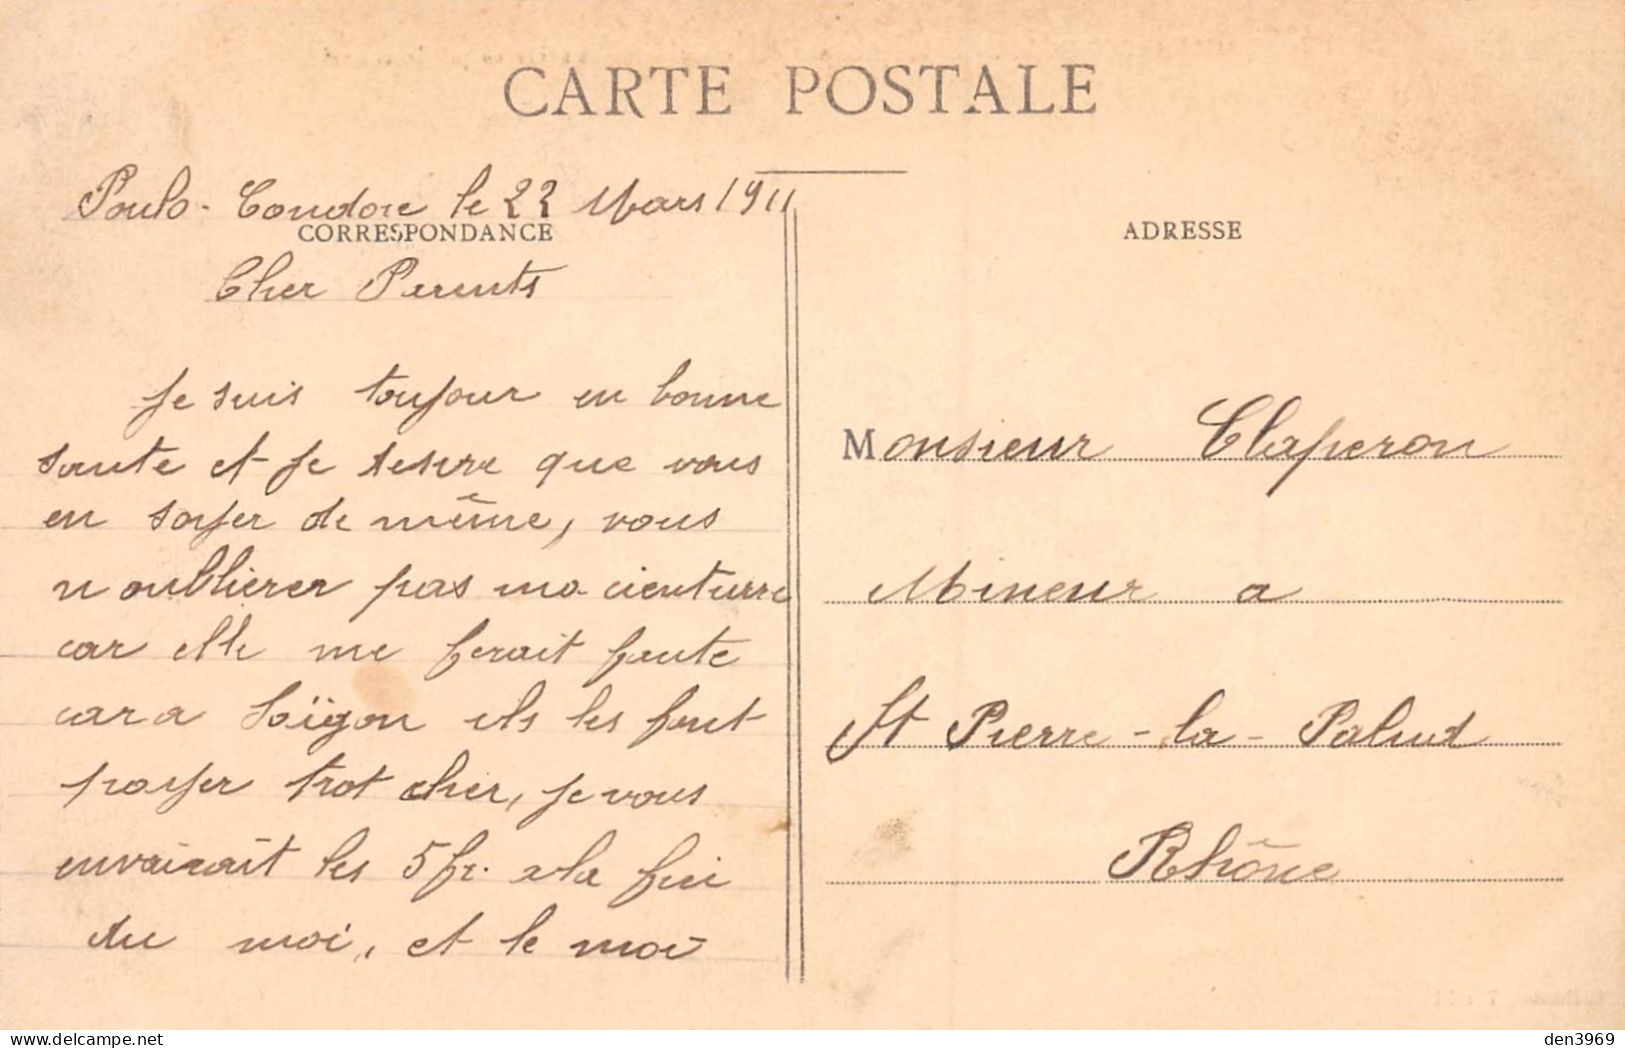 CARTE POSTALE
Poulo-Condore le 22 Mars 1911
CORRESPONDANCE
Cher Parents
Je suis toujour en bonne
sante et je desire que vous
en soyer de même, vous
n oublierer pas ma cienturre
car elle me ferait faute
car a Saïgon ils les font
payer trot cher, je vous
envairait les 5 fr. a la fin
du moi, et le moi
ADRESSE
Monsieur Claperon
Mineur a
St Pierre-la-Palud
Rhône
den3969